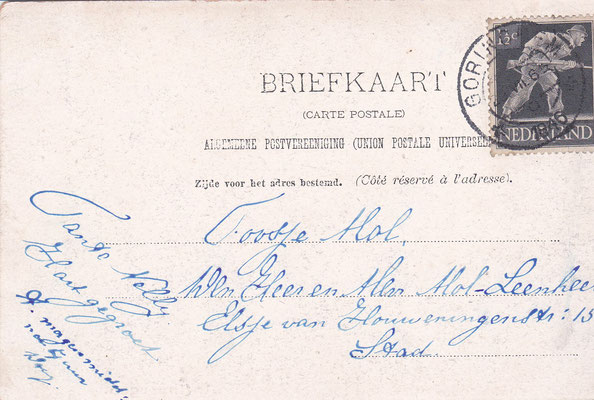 BRIEFKAART
(CARTE POSTALE)
ALGEMEENE POSTVEREENIGING (UNION POSTALE UNIVERSEL
Zijde voor het adres bestemd. (Côté réservé à l'adresse).
1½ c
NEDERLAND
GORI
Toosje Mol,
Den Heer en Mevr Mol-Leenhee
Elsje van Houweningenstr: 15
Stad.
Tante Nelly
Hart gegroet